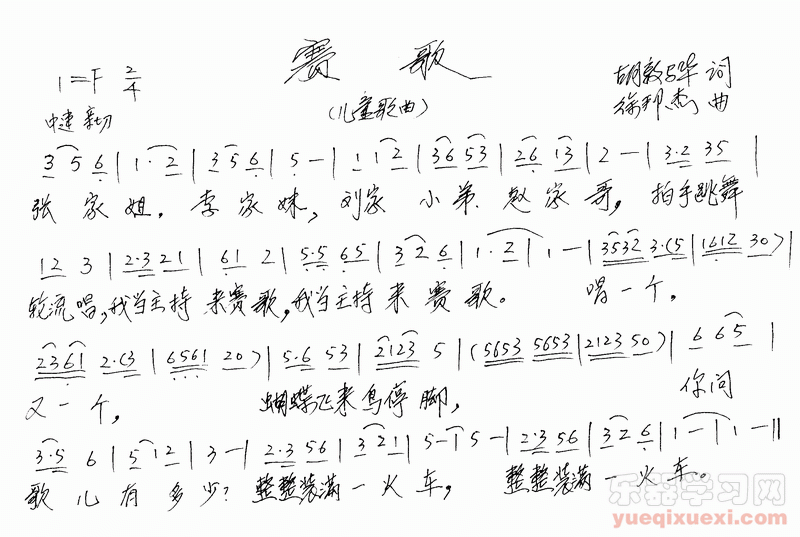 赛 歌
1=F 2/4
(儿童歌曲)
胡敦华 词
中速 亲切
徐邦杰 曲
3 5 6 | 1· 2 | 3 5 6 | 5 — | 1 1 2 | 36 53 | 26 13 | 2 — | 3·2 35 |
张 家 姐, 李 家 妹, 刘家 小 弟 赵 家 哥, 拍手跳舞
12 3 | 2·3 21 | 61 2 | 5·5 65 | 3 2 6 | 1· 2 | 1 — | 3532 3·(5 | 1612 30) |
轮流唱,我当主持 来赛歌,我当主持 来 赛 歌。 唱一个,
2361 2·(3 | 6561 20) | 5·6 53 | 2123 5 | (5653 5653 | 2123 50) | 6 65 |
又一个, 蝴蝶飞来鸟停脚, 你问
3·5 6 | 5 12 | 3 — | 2·3 56 | 3 21 | 5 — | 5 — | 2·3 56 | 3 2 6 | 1 — | 1 — ||
歌 儿 有 多 少? 整整装满 一 火 车, 整整装满 一 火 车。
乐器学习网
yueqixuexi.com